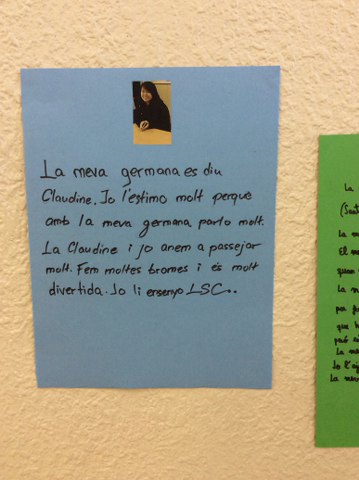 La meva germana es diu
Claudine. Jo l'estimo molt perquè
amb la meva germana parlo molt.
La Claudine i jo anem a passejar
molt. Fem moltes bromes i és molt
divertida. Jo li ensenyo LSC..
La
(Sant
la m
El m
quan
la n
per
que h
però
La ne
Jo l'aj
la nev